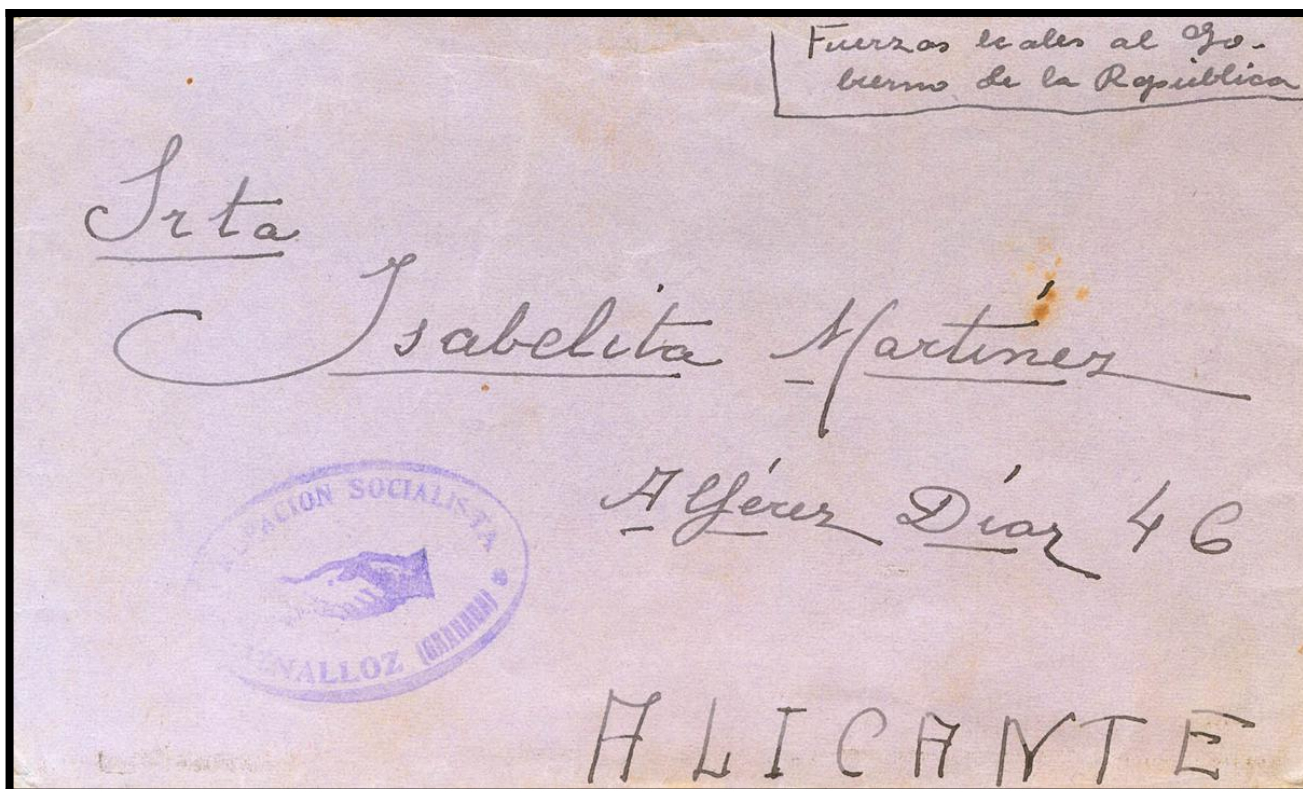 Fuerzas leales al Go-
bierno de la República
Srta
Isabelita Martínez
Alférez Díaz 46
AGRUPACION SOCIALISTA
IZNALLOZ (GRANADA)
ALICANTE